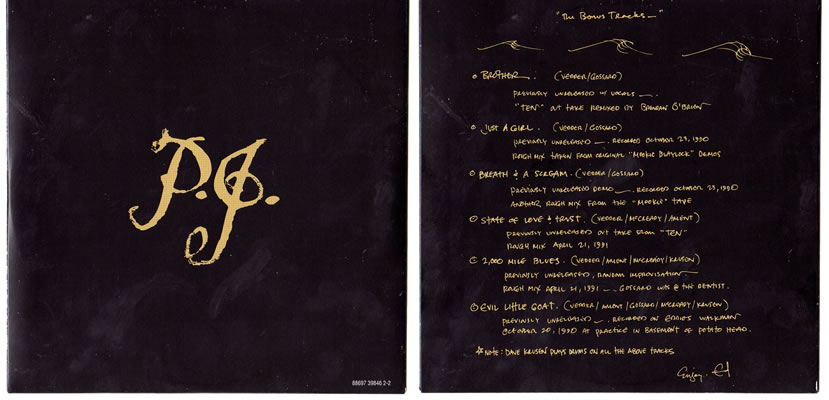 P.J.
88697 39846 2-2
"The Bonus Tracks—"
BROTHER. (VEDDER/GOSSARD)
PREVIOUSLY UNRELEASED W/ VOCALS —.
"TEN" OUT TAKE REMIXED BY BRENDAN O'BRIEN
JUST A GIRL. (VEDDER/GOSSARD)
PREVIOUSLY UNRELEASED —. RECORDED OCTOBER 1990
ROUGH MIX TAKEN FROM ORIGINAL "MOOKIE BLAYLOCK" DEMOS
BREATH & A SCREAM. (VEDDER/GOSSARD)
PREVIOUSLY UNRELEASED DEMO —. RECORDED OCTOBER 1990
ANOTHER ROUGH MIX FROM THE "MOOKIE" TAPE
STATE OF LOVE & TRUST. (VEDDER/MCCREADY/AMENT)
PREVIOUSLY UNRELEASED OUT TAKE FROM "TEN"
ROUGH MIX APRIL 21, 1991
2,000 MILE BLUES. (VEDDER/AMENT/MCCREADY/KRUSEN)
PREVIOUSLY UNRELEASED, RANDOM IMPROVISATION—
ROUGH MIX APRIL 21, 1991 —. GOSSARD WAS @ THE DENTIST.
EVIL LITTLE GOAT. (VEDDER/AMENT/GOSSARD/MCCREADY/KRUSEN)
PREVIOUSLY UNRELEASED —. RECORDED ON EDDIES WALKMAN
OCTOBER 20, 1990 AT PRACTICE IN BASEMENT OF POTATO HEAD.
NOTE: DAVE KRUSEN PLAYS DRUMS ON ALL THE ABOVE TRACKS
Enjoy. Ed